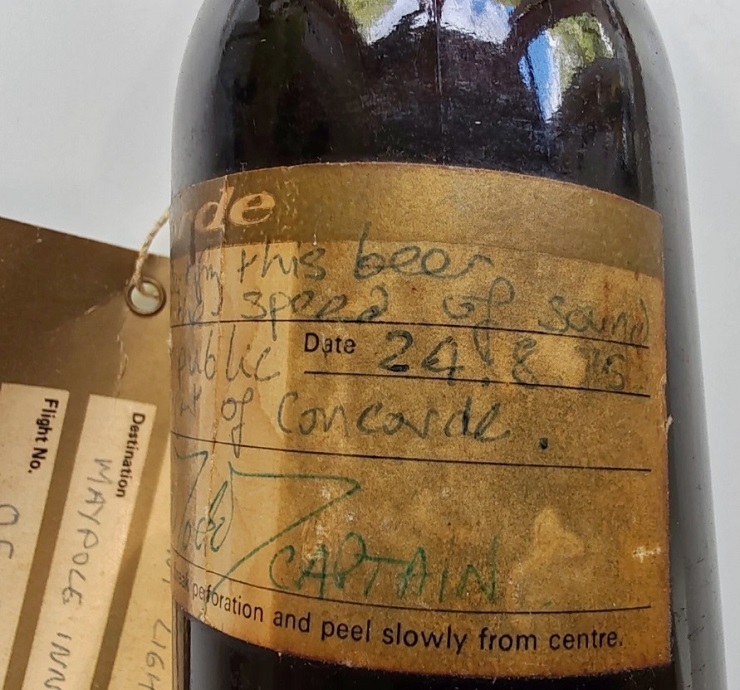 rde
this beer
speed of sound
public Date 24.8.75
of Concorde.
CAPTAIN
perforation and peel slowly from centre.
Flight No.
Destination
MAYPOLE INN